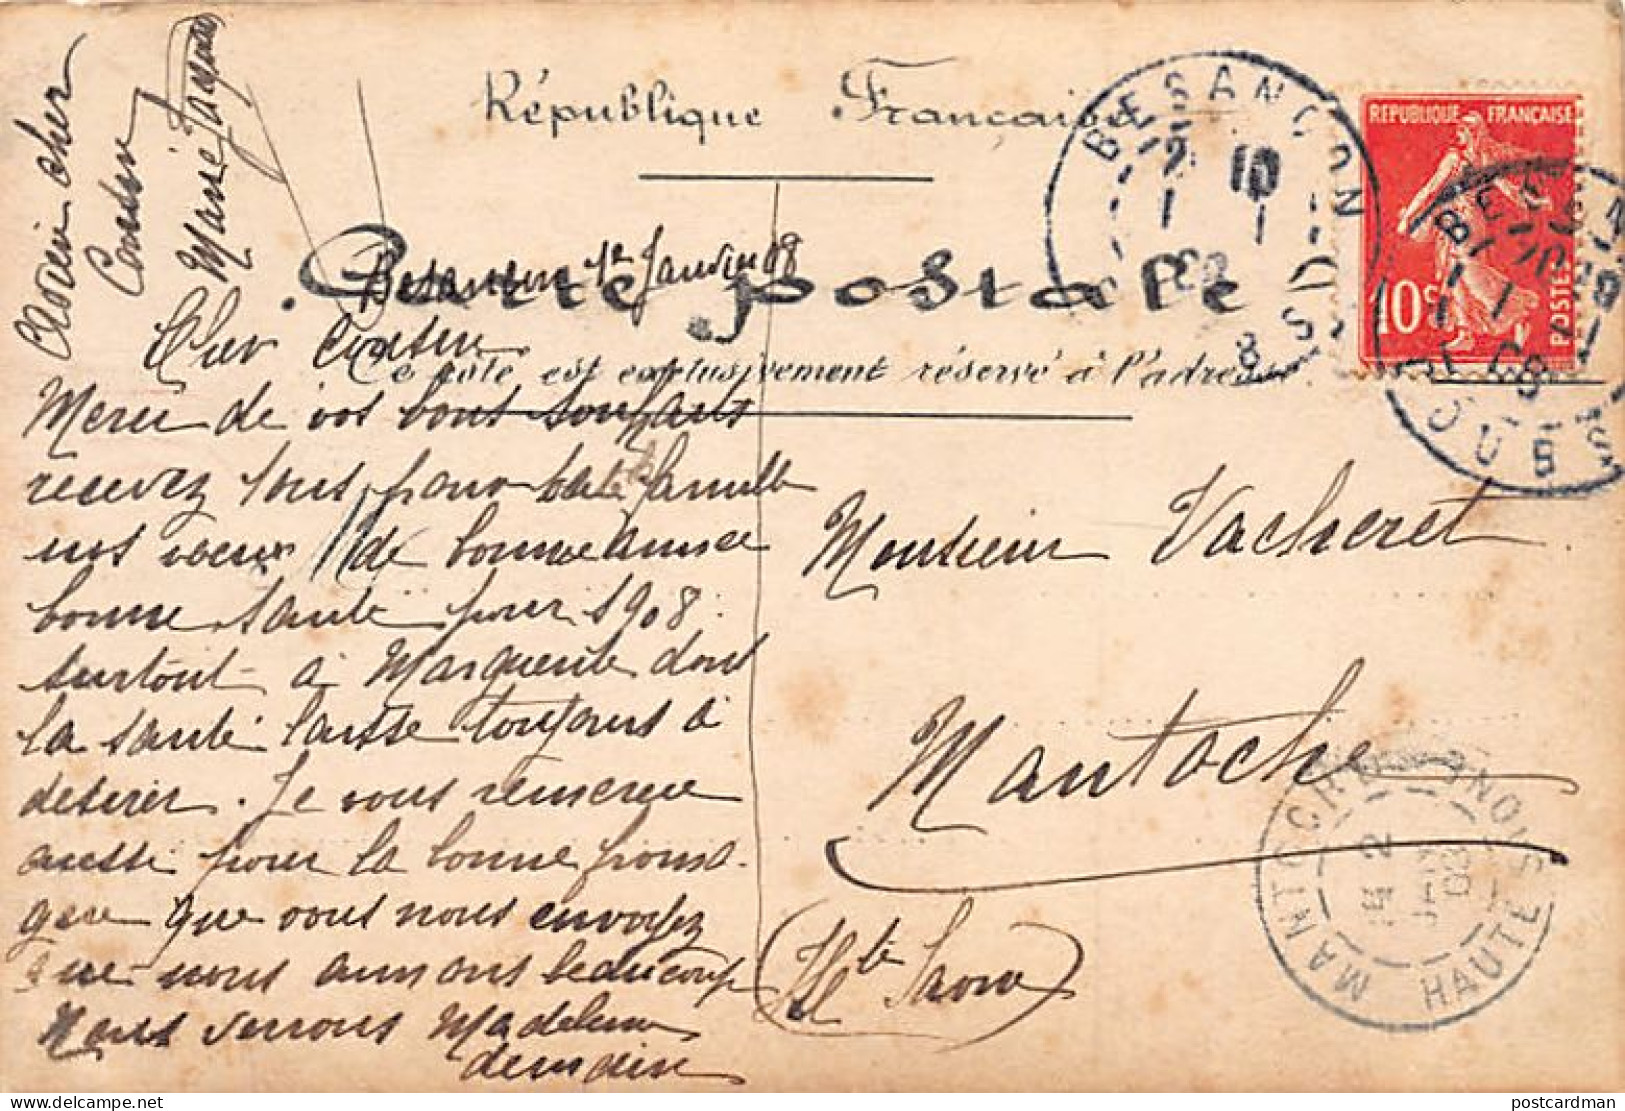 République Française
Carte postale
Ce côté est exclusivement réservé à l'adresse.
REPUBLIQUE FRANÇAISE
10c
POSTES
BESANCON
10
DOUBS
Besançon 1er Janvier 08
Cher Cousin
Merci de vos bons souhaits
recevez tous pour toute la famille
nos voeux de bonne année
bonne santé pour 1908.
surtout à Marguerite dont
la santé laisse toujours à
désirer. Je vous remercie
aussi pour la bonne froma-
gere que vous nous envoyez
que nous aimons beaucoup
Nous verrons Madeleine
demain
cher
Cousin
Marie
Monsieur Vacheret
Mantoche
(Hte Saone)
MANTOCHE
2
08
HAUTE SAONE
postcardman